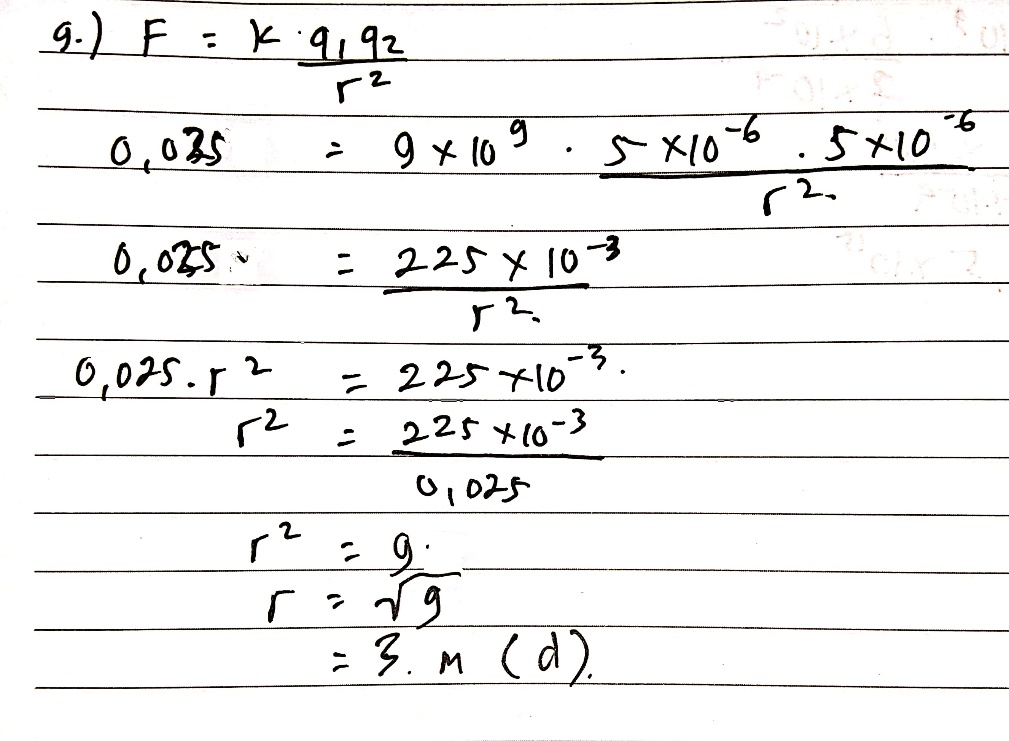 9.) F = k . q1 q2 / r²
0,025 = 9 × 10⁹ . 5 ×10⁻⁶ . 5 ×10⁻⁶ / r²
0,025 = 225 × 10⁻³ / r²
0,025 . r² = 225 ×10⁻³.
r² = 225 ×10⁻³ / 0,025
r² = 9.
r = √9
= 3. m (d).